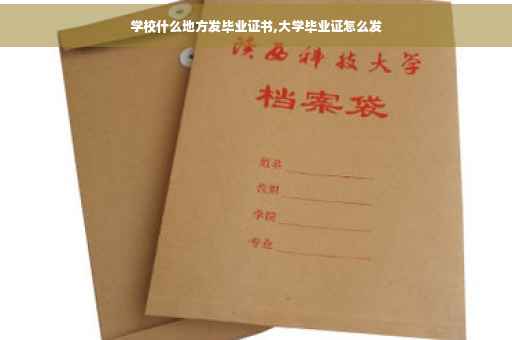 学校什么地方发毕业证书,大学毕业证怎么发
陕西科技大学
档案袋
姓名
学院
专业